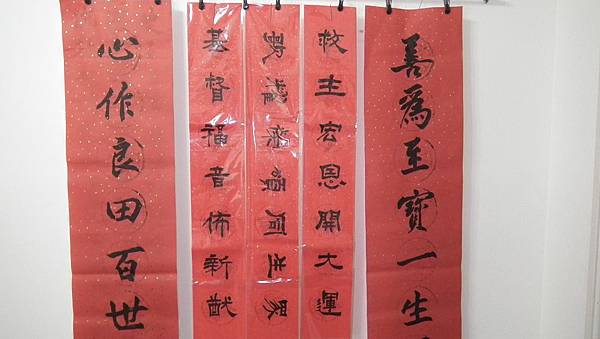 善爲至寶一生
救主宏恩開大運
基督福音佈新猷
心作良田百世